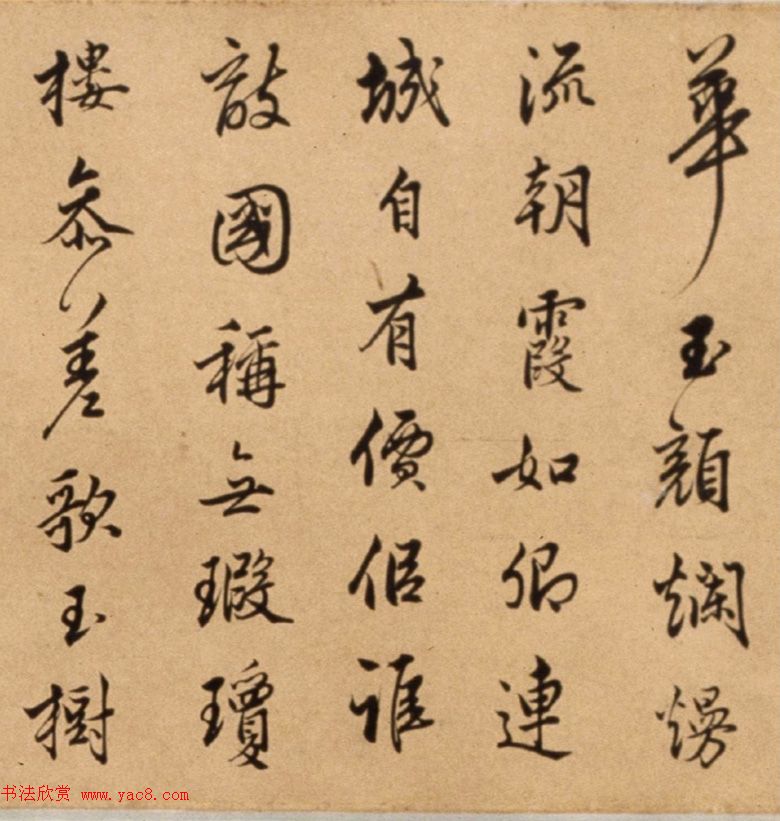 華玉顏爛熳
流朝霞如卿連
城自有價佀誰
敵國稱無瑕瓊
樓參差歌玉樹
书法欣赏 www.yac8.com